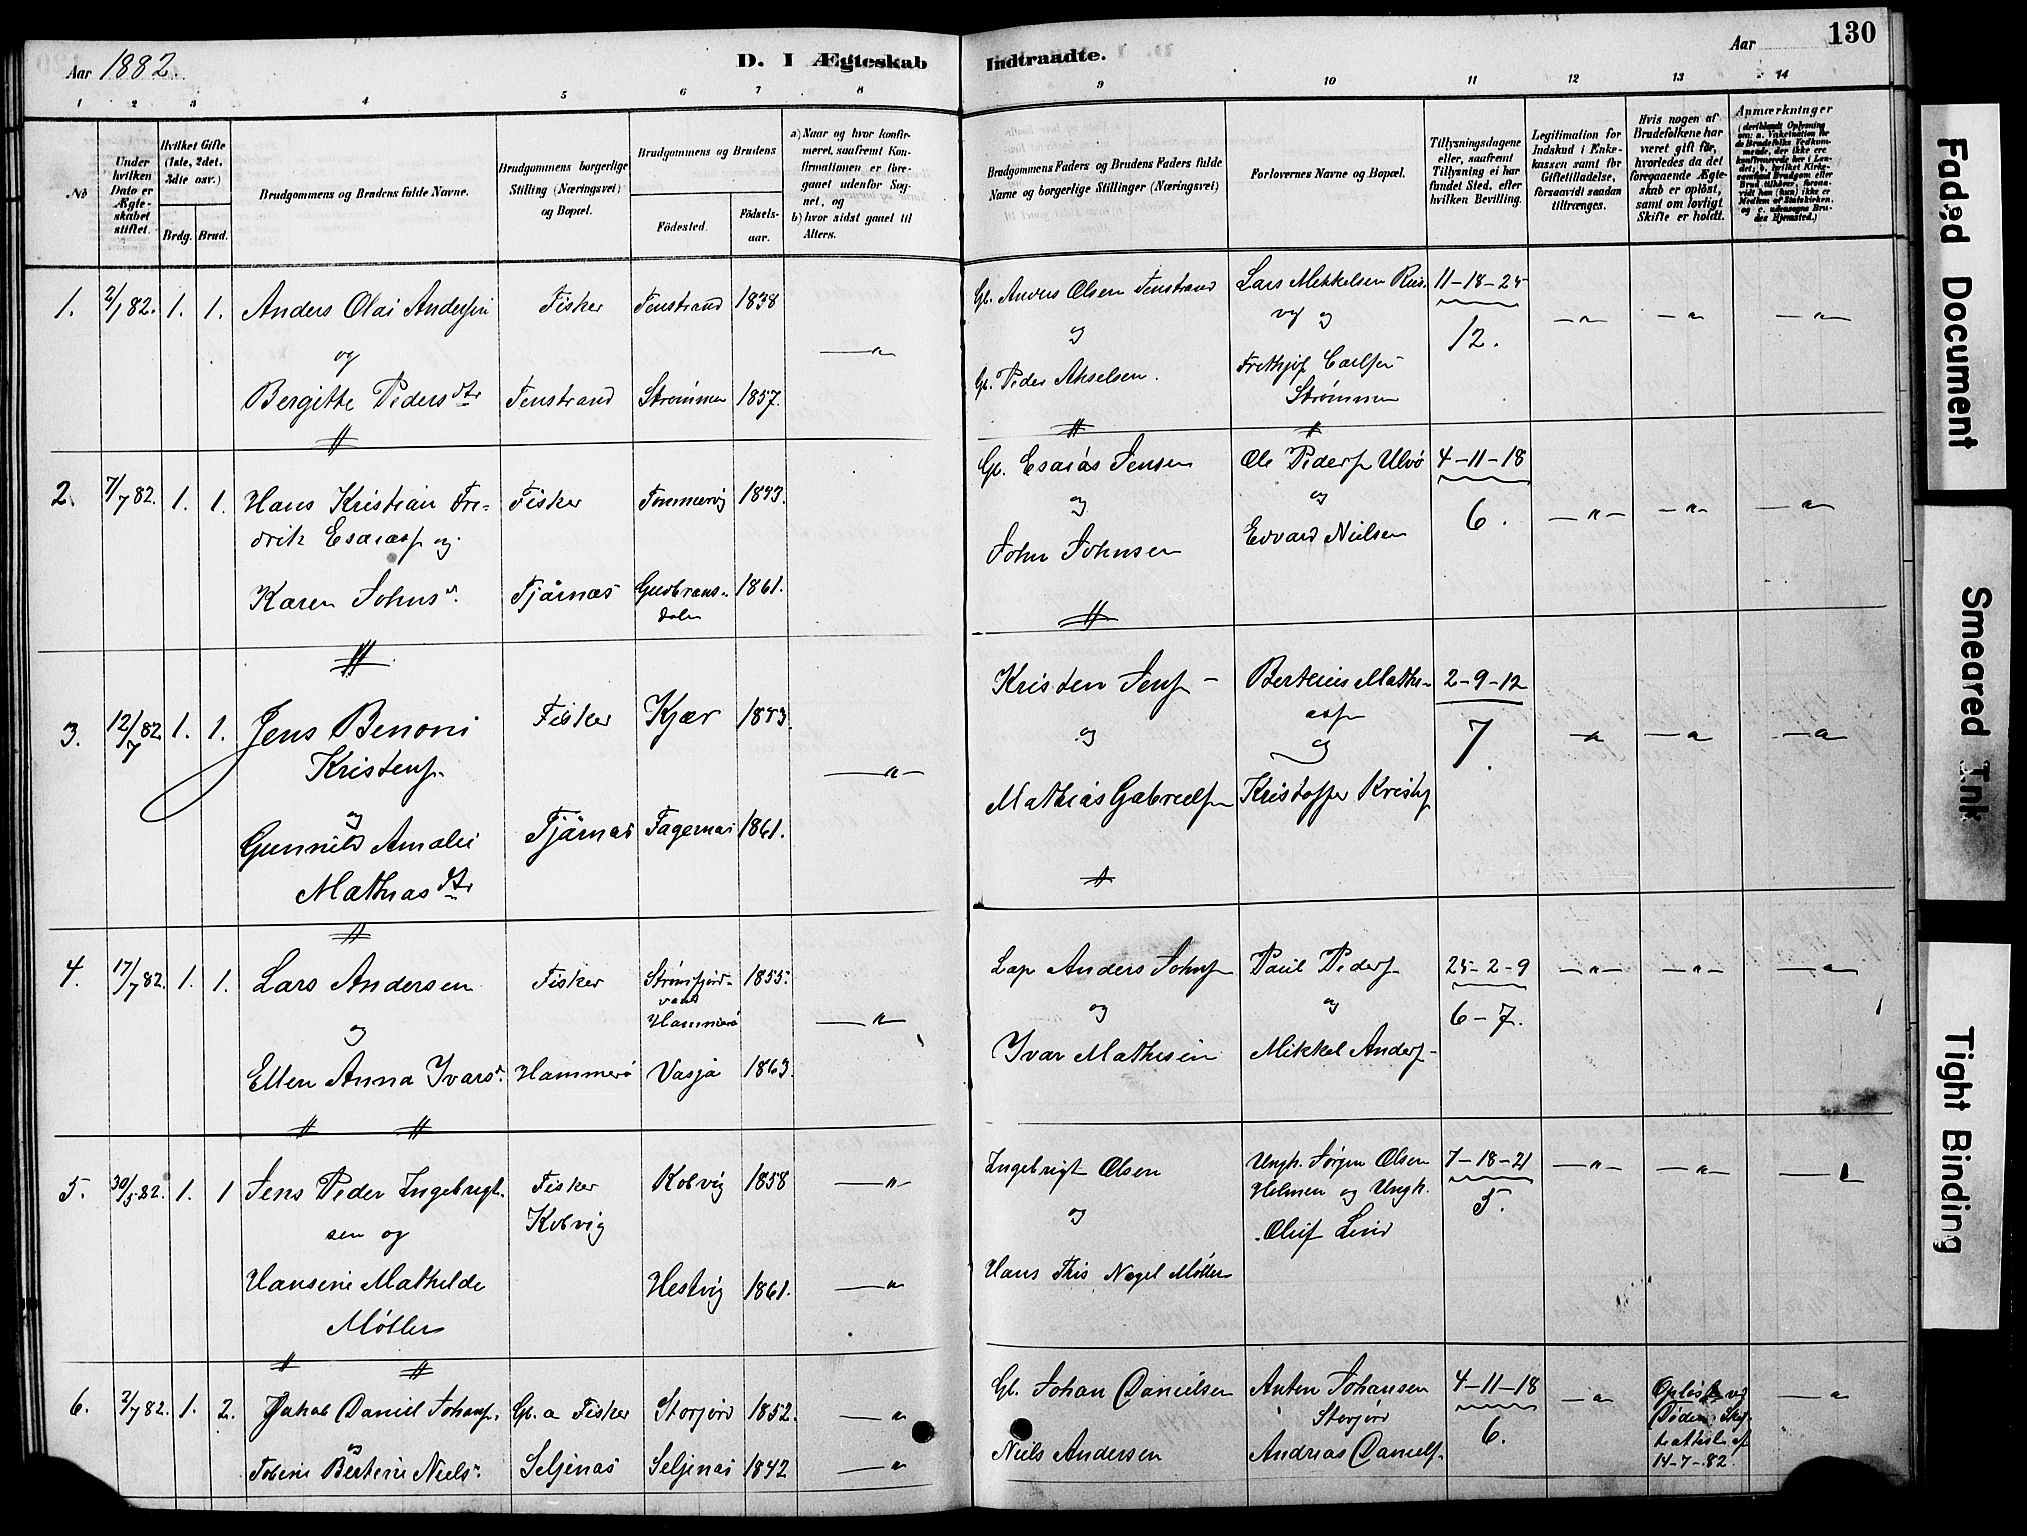 Aar 1882.
D. I Ægteskab Indtraadte.
Aar
130
1 2 3 4 5 6 7 8 9 10 11 12 13 14
No
Under hvilken Dato er Ægteskabet stiftet.
Hvilket Gifte (1ste, 2det, 3die osv.)
Brdg. Brud.
Brudgommens og Brudens fulde Navne.
Brudgommens borgerlige Stilling (Næringsvei) og Bopæl.
Brudgommens og Brudens
Födested.
Födsels-aar.
a) Naar og hvor konfirmeret, saafremt Konfirmationen er foregaaet udenfor Sognet, og
b) hvor sidst gaaet til Alters.
Brudgommens Faders og Brudens Faders fulde Navne og borgerlige Stillinger (Næringsvei)
Forlovernes Navne og Bopæl.
Tillysningsdagene eller, saafremt Tillysning ei har fundet Sted, efter hvilken Bevilling.
Legitimation for Indskud i Enkekassen samt for Giftetilladelse, forsaavidt saadan tiltrænges.
Hvis nogen af Brudefolkene har været gift før, hvorledes da det foregaaende Ægteskab er opløst, samt om lovligt Skifte er holdt.
Anmærkninger
1. 2/1 82. 1. 1. Anders Olai Andersen Fisker Tenstrand 1838
og
Bergitte Pedersdtr Tenstrand Strømmen 1857.
Gl. Anders Olsen Tenstrand
og
Gl. Peder Akselsen.
Lars Mekkelsen
og
Frethjof Carlsen
Strømmen
11-18-25
12.
2. 7/7 82. 1. 1. Hans Kristian Fre-
drik Esaiass. og
Fisker Tommervig
Karen Johnsd. Tjårnæs Gudbrans-
dalen 1861.
Gl. Esaias Jensen
og
John Johnsen
Ole Peders. Ulvø
og
Edvard Nielsen
4-11-18
6.
3. 12/7 82 1. 1. Jens Benoni
Kristens.
Fisker Kjær
og
Gunnild Amalie
Mathiasdtr
Tjårnæs Fagernæs 1861.
Kristen Jens.
og
Mathias Gabriels.
Berteus Mathi-
ass.
og
Kristoffer
2-9-12
7.
4. 17/7 82. 1. 1. Lars Andersen Fisker
Hammerø 1855.
og
Ellen Anna Ivarsd. Hammerø Vasja 1863.
Lap Anders Johns.
og
Ivar Mathisen
Paul Peders.
og
Mikkel Anders.
25-2-9
6-7.
5. 30/5 82. 1. 1 Jens Peder Ingebrigt-
sen og
Fisker
Kobvig
Kobvig 1858
Hansine Mathilde
Møller
Hestvig 1861.
Ingebrigt Olsen
og
Hans This Nagel Møller
Ungk. Jørgen Olsen
Holmen og Ungk.
Oluf Lind
7-18-21
5.
6. 2/7 82. 1. 2. Jakob Daniel Johans. Gb. a Fisker Storjord 1852.
og
Bertine Nielsd. Seljenæs Seljenæs 1842
Gl. Johan Danielsen
Niels Andersen
Anton Johansen
Storjord
Andreas Daniels.
4-11-18
6.
Opløst ved
Døden
14-7-82.
Faded Document
Smeared Ink
Tight Binding